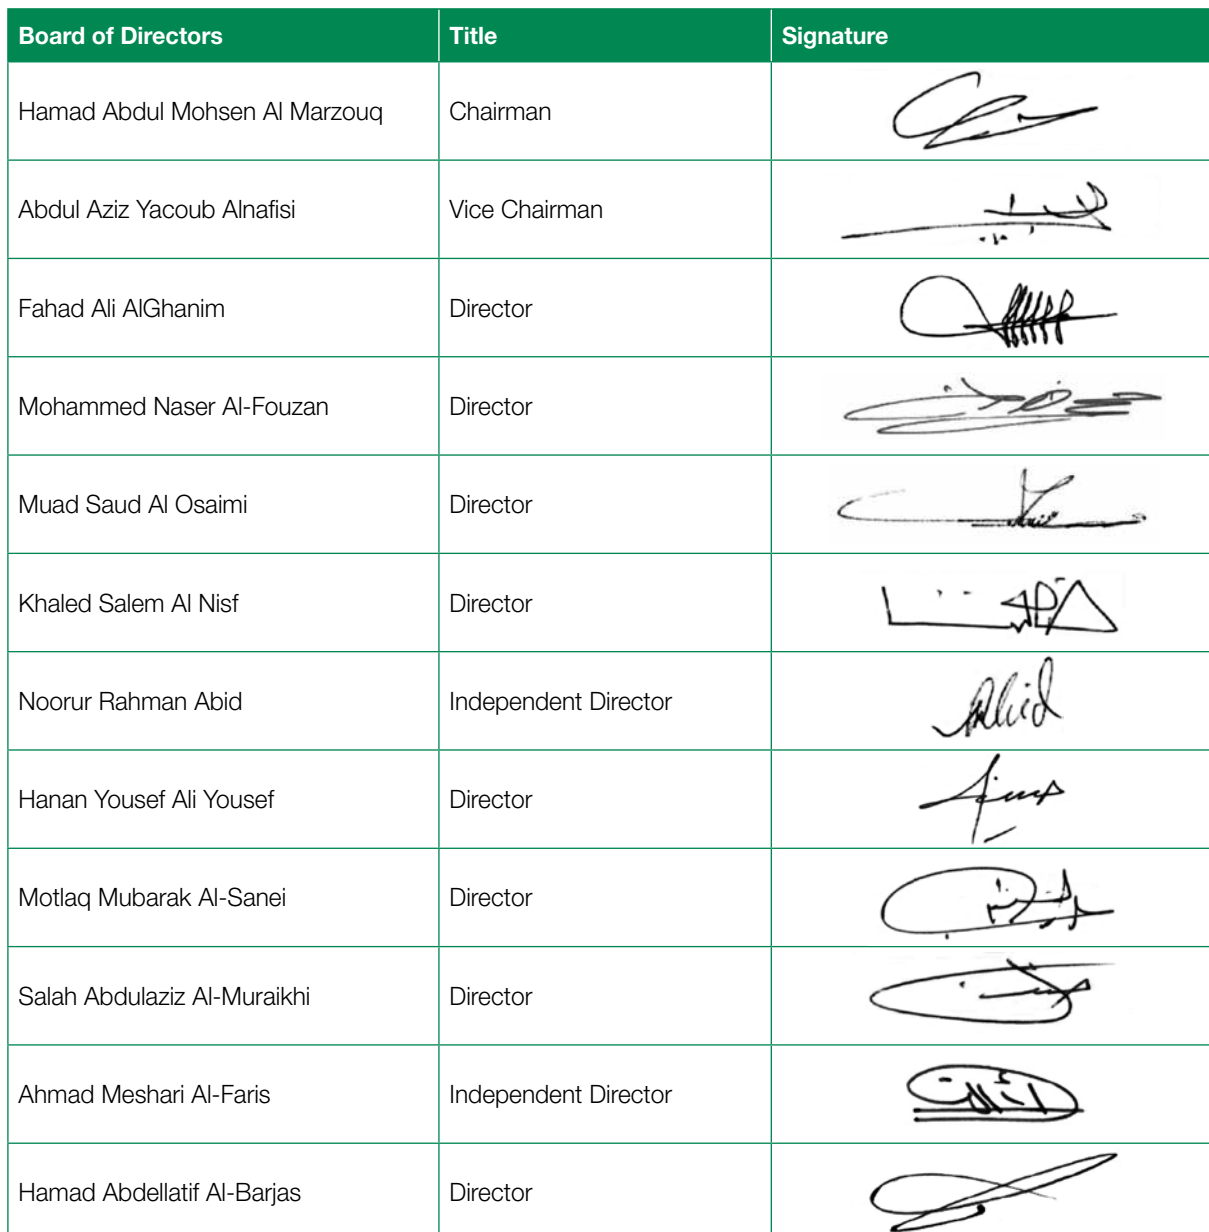 Board of Directors Title Signature
Hamad Abdul Mohsen Al Marzouq Chairman
Abdul Aziz Yacoub Alnafisi Vice Chairman
Fahad Ali AlGhanim Director
Mohammed Naser Al-Fouzan Director
Muad Saud Al Osaimi Director
Khaled Salem Al Nisf Director
Noorur Rahman Abid Independent Director
Hanan Yousef Ali Yousef Director
Motlaq Mubarak Al-Sanei Director
Salah Abdulaziz Al-Muraikhi Director
Ahmad Meshari Al-Faris Independent Director
Hamad Abdellatif Al-Barjas Director